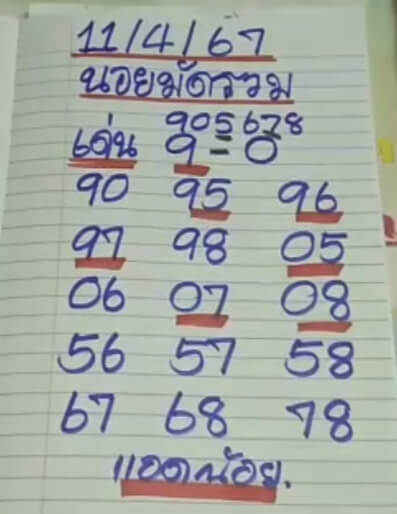 11/4/67
นอยมัดรวม
905678
เด่น 9-0
90 95 96
97 98 05
06 07 08
56 57 58
67 68 78
แอดน้อย.